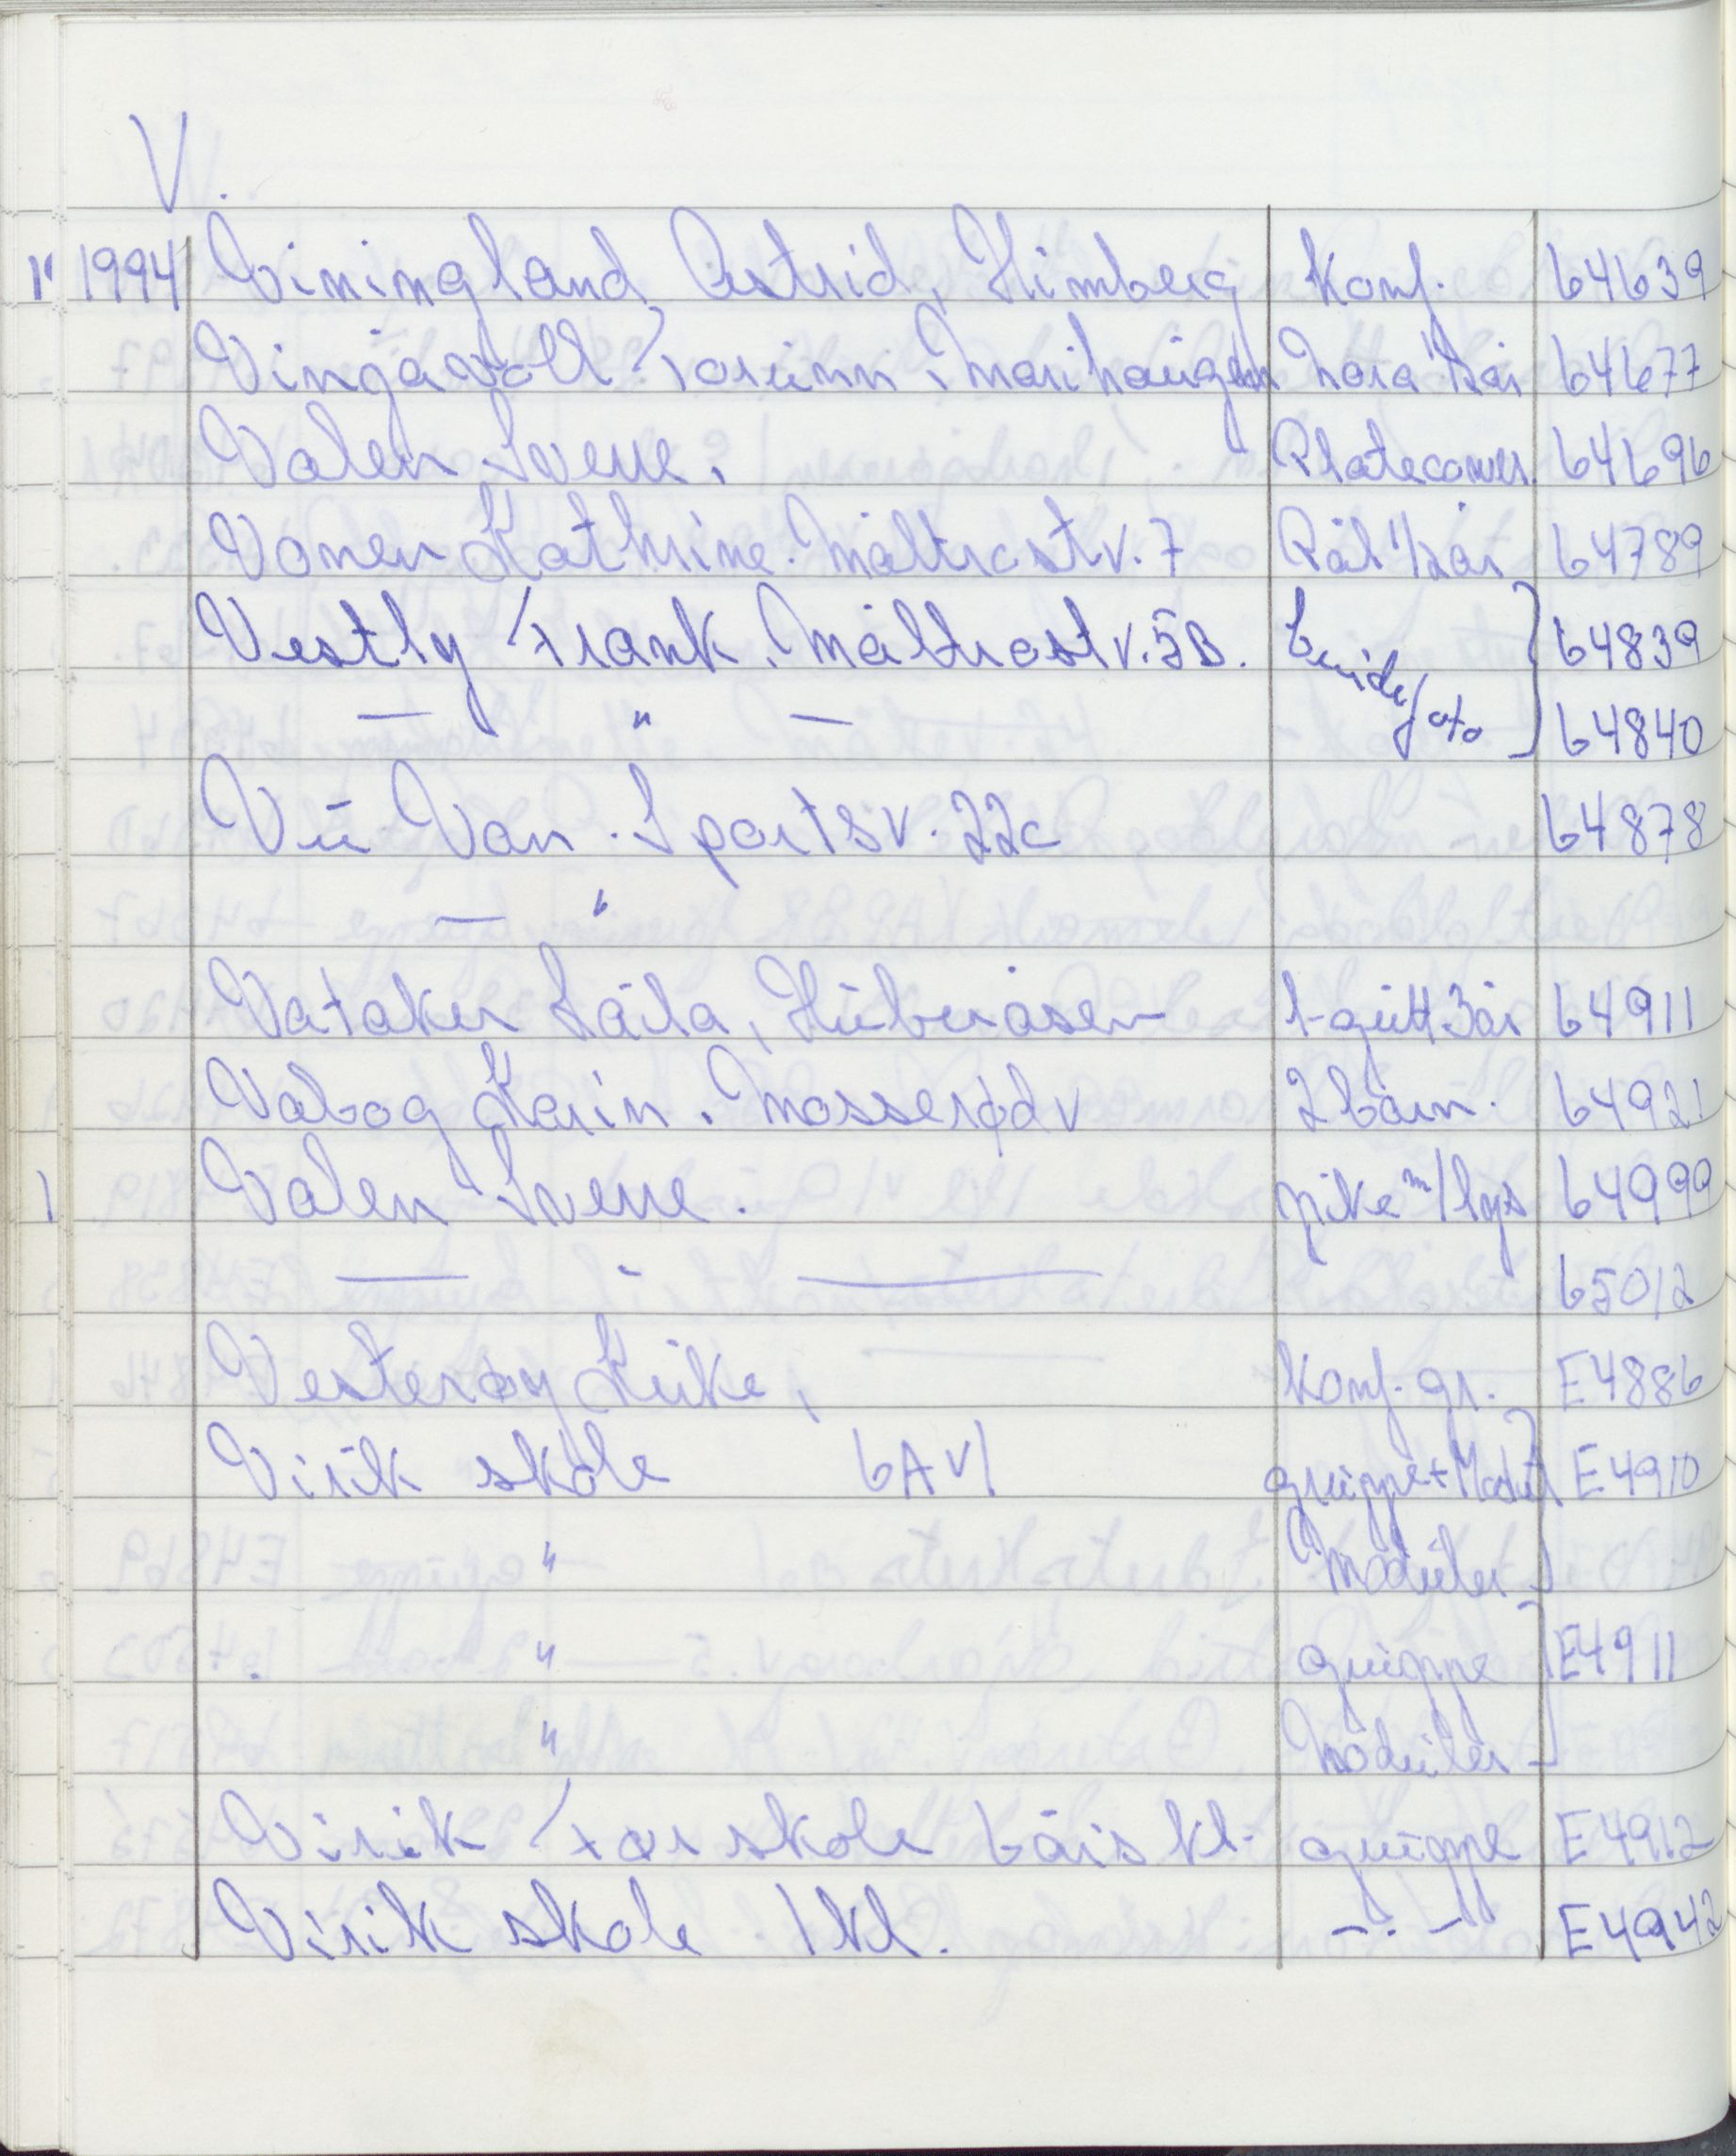 V.
1" 1994 Viningland Astrid, Himberg Konf. 64639
Vingavoll Torunn, Marihaugen Nora 1/2 år 64677
Valen Sverre, Platecover 64696
Vonen Kathrine. Måltrostv. 7 Pål 1/2 år 64789
Vestly Frank. Måltrostv. 5B. Brudefoto 64839
— " — 64840
Vu Van. Sportsv. 22c 64878
— "
Vataker Laila, Huberåsen 1 gutt 3 år 64911
Vabog Karin. Mosserødv 2 barn. 64921
1 Valen Sverre. pike m/lys 64999
— " — 65012
Vesterøy Kirke, Konf. gr. E4886
Virik skole 6A V/ gruppe + Moduler E4910
" Moduler
" gruppe E4911
" Moduler
Virik Førskole 6 års kl. gruppe E4912
Virik skole 1 kl. - . - E4942